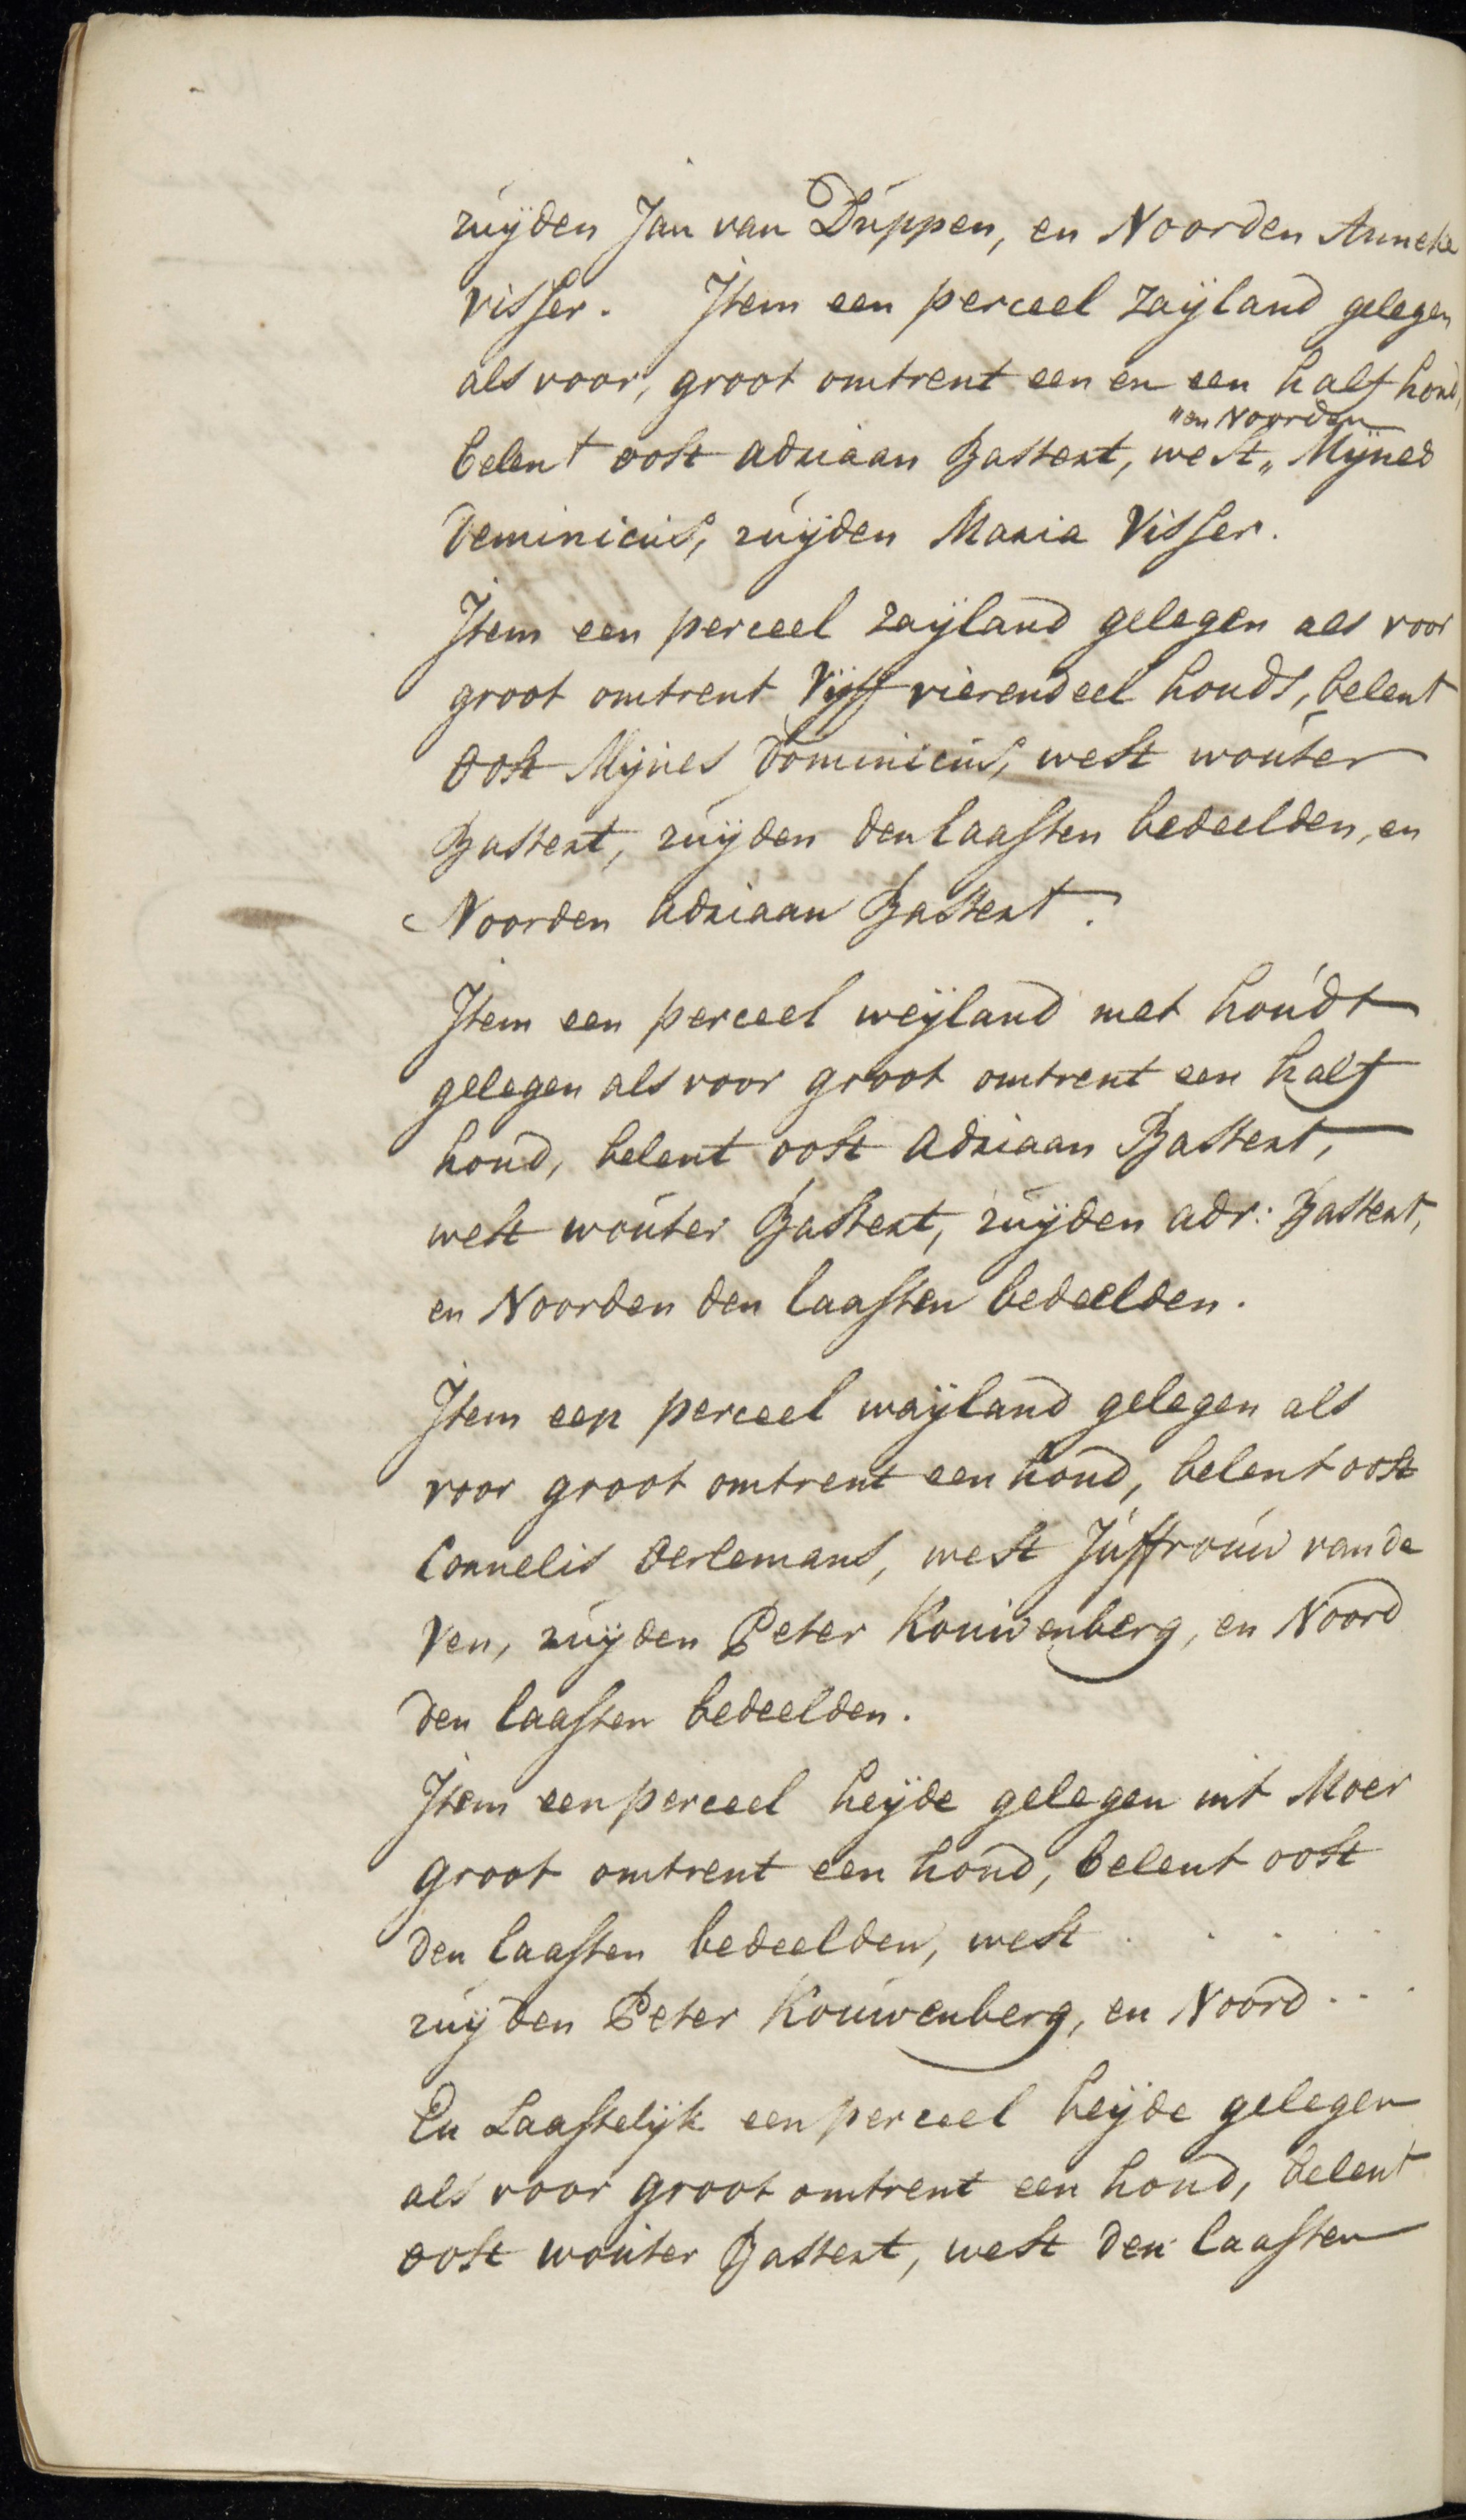 zuÿden Jan van Duppen, en Noorden Anneke
visser. Item een perceel zaÿland gelegen
als voor, groot omtrent een en een half hond,
"en Noorden
belent oost adriaan Bastert, west„ Mÿnes
Deminicus, zuÿden Maria Visser.
Item een perceel zaÿland gelegen als voor
groot omtrent Vÿff vierendeel honds, belent
oost Mÿnes Dominicus, west wouter
Bastert, zuÿden den laasten bedeelden, en
Noorden adriaan Bastert.
Item een perceel weÿland met houdt
gelegen als voor groot omtrent een half
hond, belent oost adriaan Bastert,
west wouter Bastert, zuÿden adr: Bastert,
en Noorden den laasten bedeelden.
Item een perceel waÿland gelegen als
voor groot omtrent een hond, belent oost
Cornelis Oerlemans, west Juffrouw van de
Ven, zuÿden Peter Kouwenberg, en Noord
den laasten bedeelden.
Item een perceel heÿde gelegen int Moer
groot omtrent een hond, belent oost
den laasten bedeelden, west . . . . .
zuÿden Peter Kouwenberg, en Noord . . .
En Laastelÿk een perceel heÿde gelegen
als voor groot omtrent een hond, belent
oost wouter Bastert, west den laasten